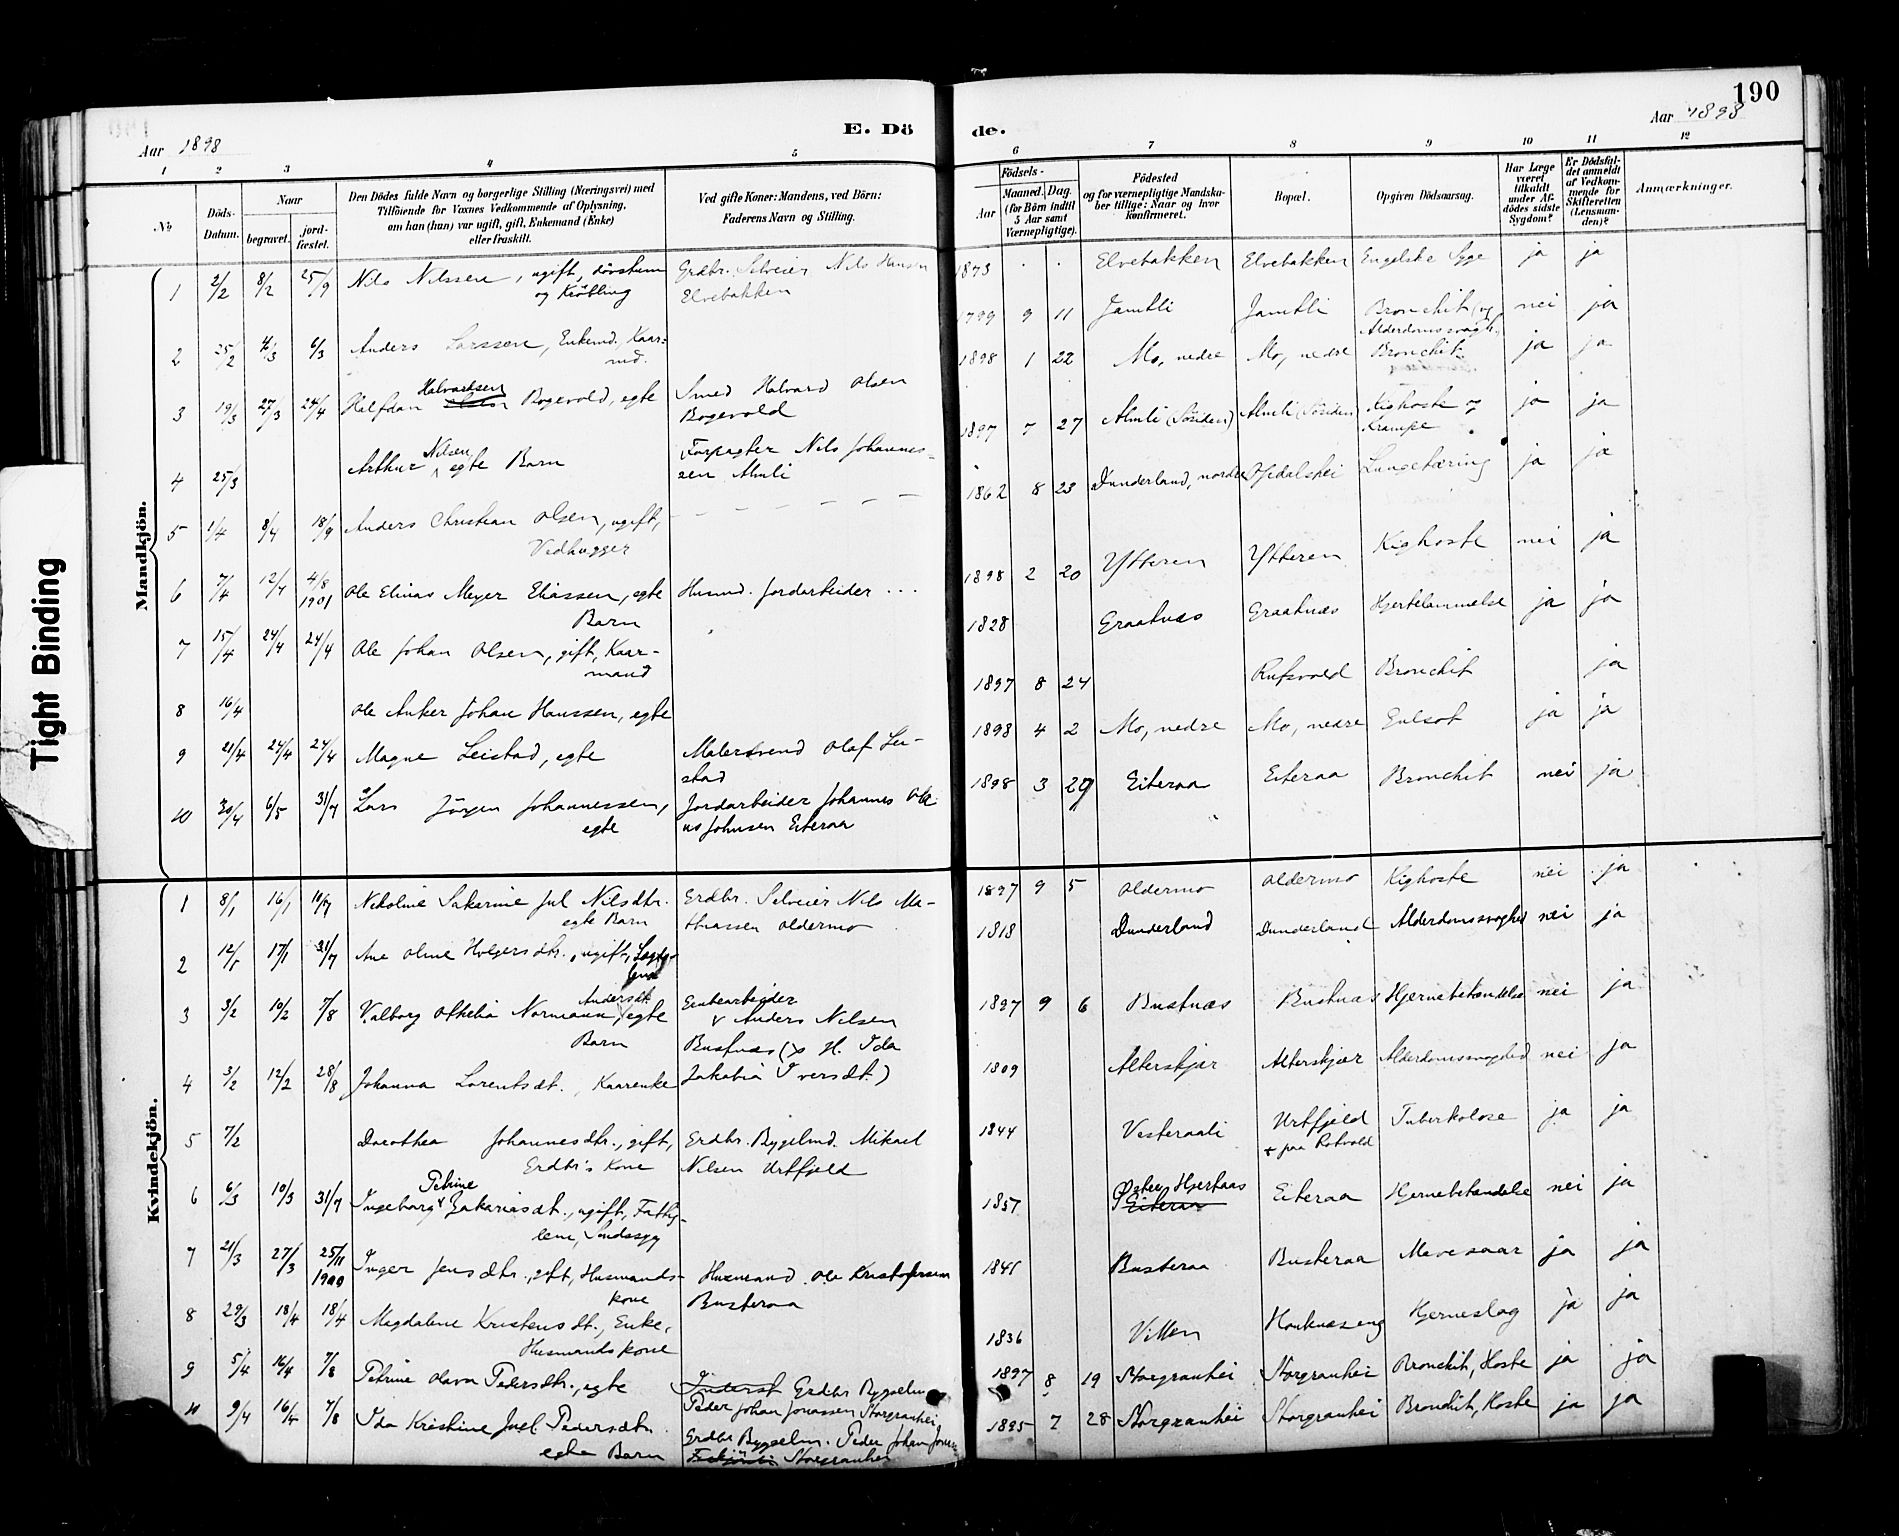 190
Aar 1898
E. Dö
de.
Aar 1898
1 2 3 4 5 6 7 8 9 10 11 12
No
Döds-Datum.
Naar
begravet.
jord-fæstet.
Den Dödes fulde Navn og borgerlige Stilling (Næringsvei) med
Tilföiende for Voxnes Vedkommende af Oplysning,
om han (hun) var ugift, gift, Enkemand (Enke)
eller fraskilt.
Ved gifte Koner: Mandens, ved Börn:
Faderens Navn og Stilling.
Födsels-
Aar
Maaned. Dag.
(for Börn indtil
5 Aar samt
Værnepligtige).
Födested
og for værnepligtige Mandska-
ber tillige: Naar og hvor
konfirmeret.
Bopæl.
Opgiven Dödsaarsag.
Har Læge
været
tilkaldt
under Af-
dödes sidste
Sygdom?
Er Dödsfal-
det anmeldt
af Vedkom-
mende for
Skifteretten
(Lensman-
den)?
Anmærkninger.
Tight Binding
Mandkjön.
1 2/2 8/2 25/9 Nils Nilssen, ugift, døvstum Grdbr. Selveier Nils Hansen 1873 Elvebakken Elvebakken Engelske Syge ja ja
og Krøbling Elvebakken
2 25/2 4/3 6/3 Anders Larssen, Enkemd. Kaar- 1799 9 11 Jamtli Jamtli Bronchit (og nei ja
md. Alderdomssvagh.
3 19/3 27/3 24/4 Halfdan Halvardsen Bogevold, egte Smed Halvard Olsen 1898 1 22 Mo, nedre Mo, nedre Bronchit ja ja
Bogevold
4 25/3 Arthur Nilsen egte Barn Forpagter Nils Johannes- 1897 7 27 Almli (Søsiden) Almli (Søsiden) Kighoste og ja ja
sen Almli Krampe
5 1/4 8/4 18/9 Anders Christian Olsen, ugift, 1862 8 23 Dunderland, nordre Lungetæring ja ja
Vedhugger
6 7/4 12/4 4/8 1901 Ole Elinas Meyer Eliassen, egte Husmd. Jordarbeider ... 1898 2 20 Ytteren Ytteren Kighoste nei ja
Barn
7 15/4 24/4 24/4 Ole Johan Olsen, gift, Kaar- 1828 Graatnæs Graatnæs Hjertelammelse ja ja
mand
8 16/4 Ole Anker Johan Hanssen, egte 1897 8 24 Rufsvold Bronchit ja
9 21/4 24/4 24/4 Magne Leistad, egte Malersvend Olaf Lei- 1898 4 2 Mo, nedre Mo, nedre Gulsot ja ja
stad
10 30/4 6/5 31/7 Lars Jörgen Johannessen, Jordarbeider Johannes Ole 1898 3 29 Eiteraa Eiteraa Bronchit nei ja
egte us Johnsen Eiteraa
Kvindekjön.
1 8/1 16/1 10/7 Nikoline Sakarine Jul Nilsdtr. Grdbr. Selveier Nils Ma- 1897 9 5 Oldermo Oldermo Kighoste nei ja
egte Barn thiassen Oldermo
2 12/1 17/1 31/7 Ane Oline Holgersdtr., ugift, 1818 Dunderland Dunderland Alderdomssvaghed nei ja
3 3/2 10/2 7/8 Valborg Othelia Normann Andersdt. egte Grubearbeider 1897 9 6 Bustnæs Bustnæs Hjernebetændelse nei ja
Barn Anders Nilsen
Bustnæs (x H. Ida
4 3/2 12/2 28/8 Johanna Lorentsdt., Kaarenke Jakobia Iversdt.) 1809 Alterskjær Alterskjær Alderdomssvaghed nei ja
5 7/2 Dorothea Johannesdtr., gift, Grdbr. Bygelmd. Mikael 1844 Vesteraali Urtfjeld Tuberkolose ja ja
Grdbr's Kone Nilsen Urtfjeld + paa Rotvold
6 6/3 10/3 31/7 Ingeborg Petrine Zakariasdt., ugift, Fattig- 1857 Øster Hjertaas Eiteraa Hjernebetændelse nei ja
lem, Sindssyg Eiteraa
7 21/3 27/3 25/11 1900 Inger Jensdtr., gift, Husmands- Husmand Ole Kristofersen 1841 Busteraa Busteraa Mavesaar ja ja
kone Busteraa
8 29/3 18/4 18/4 Magdalene Kristensdt., Enke, 1836 Villen Hauknæseng Hjerneslag ja ja
Husmandskone
9 5/4 16/4 7/8 Petrine Olava Pedersdtr., egte Inderst Grdbr Byggselm 1897 8 19 Storgranhei Storgranhei Bronchit, Hoste ja ja
Peder Johan Jonassen Storgranhei
10 9/4 16/4 7/8 Ida Kristine Juel Pedersdt. Grdbr Byggselm. Peder Johan Jonas 1895 7 28 Storgranhei Storgranhei Bronchit, Hoste ja ja
egte Barn Storgranhei